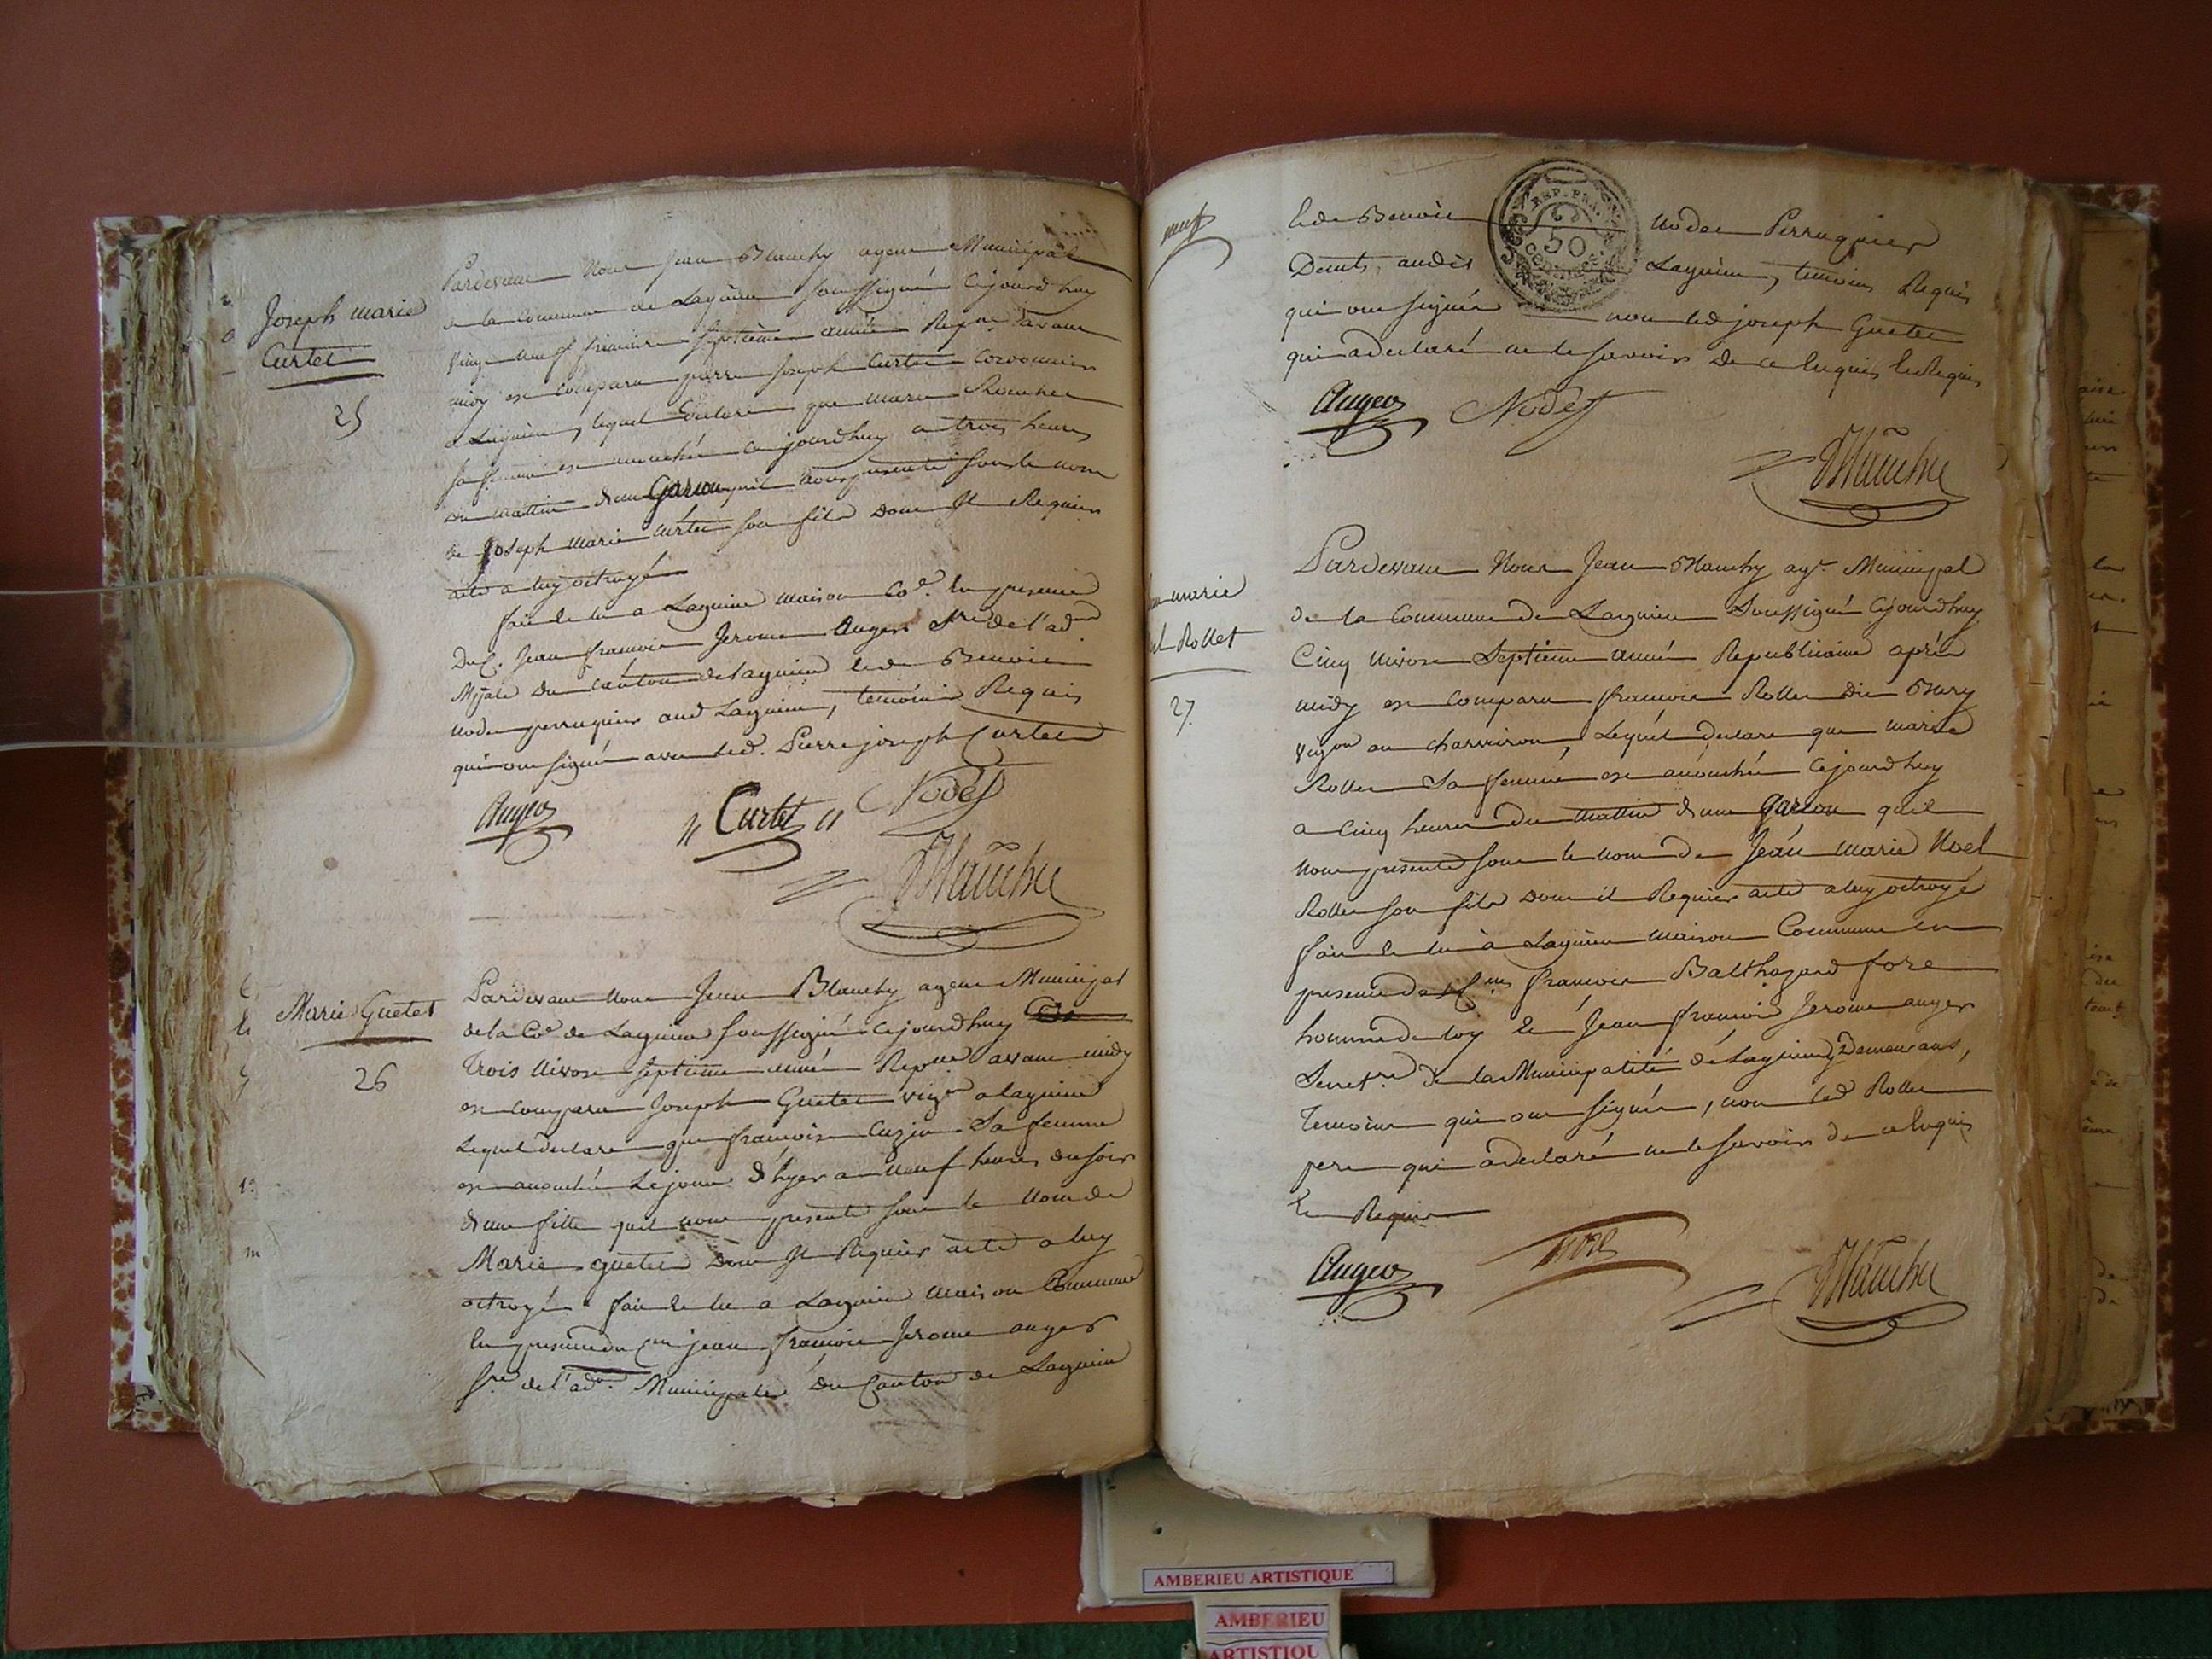 Joseph marie
Curtet
25
Pardevant Nous Jean Blanchy agent Municipal
de la Commune de Lagnieu soussigné Cejourdhuy
vingt neuf frimaire septieme année Repne avant
midy est comparu pierre Joseph Curtet Cordonnier
a Lagnieu, lequel declare que marie
sa femme est accouchée cejourdhuy a trois heures
du mattin d'un Garcon quil nous presente sous le nom
de Joseph marie Curtet son fils dont Il Requier
acte a luy octroyé
fait & lu a Lagnieu maison Coe. En presence
du C. Jean francois Jerome Auger Sre de l'adon
Mpale du Canton de Lagnieu & de Benoit
nodet perruquier aud Lagnieu, temoins Requis
qui ont signé avec led. Pierre joseph Curtet
Auger
Curtet
Nodet
Blanchy
Marie Guetet
26
Pardevant Nous Jean Blanchy agent Municipal
de la Coe de Lagnieu soussigné Cejourdhuy
Trois Nivose septieme année Repne avant midy
est comparu Joseph Guetet vigr a lagnieu
Lequel declare que francoise Cuzin Sa femme
est accouchée Lejour d'hyer a neuf heures du soir
d'une fille quil nous presente sous le Nom de
Marie guetet Dont Il Requier acte a luy
octroyé. fait & lu a Lagnieu maison Commune
En presence du Cen jean francois Jerome auger
Sre de l'adon. Municipale du Canton de Lagnieu
neuf
& de Benoit Nodet Perruquier
Demts audit Lagnieu, temoins Requis
qui ont signé non led joseph Guetet
qui a declaré ne le savoir de ce Enquis & Requis
REP. FRA.
50
CENTIMES
Auger
Nodet
Blanchy
marie
Rollet
27
Pardevant Nous Jean Blanchy agt Municipal
de la Commune de Lagnieu Soussigné Cejourdhuy
Cinq Nivose Septieme année Republicaine après
midy est Comparu francois Rollet dit
vigon au charviron, Lequel declare que marie
Rollet Sa femme est accouchée Cejourdhuy
a Cinq heures du mattin d'un Garcon quil
nous presente sous le nom de Jean marie Noel
Rollet son fils dont il Requier acte a luy octroyé
fait & lu à Lagnieu maison Commune en
presence des Cens francois Balthazard fore
homme de loy & Jean francois Jerome auger
Secretre de la Municipalité de Lagnieu y Demeurans,
Temoins qui ont signés, non led Rollet
pere qui a declaré ne le savoir de ce Enquis
& Requis
Auger
fore
Blanchy
AMBERIEU ARTISTIQUE
AMBERIEU
ARTISTIQU